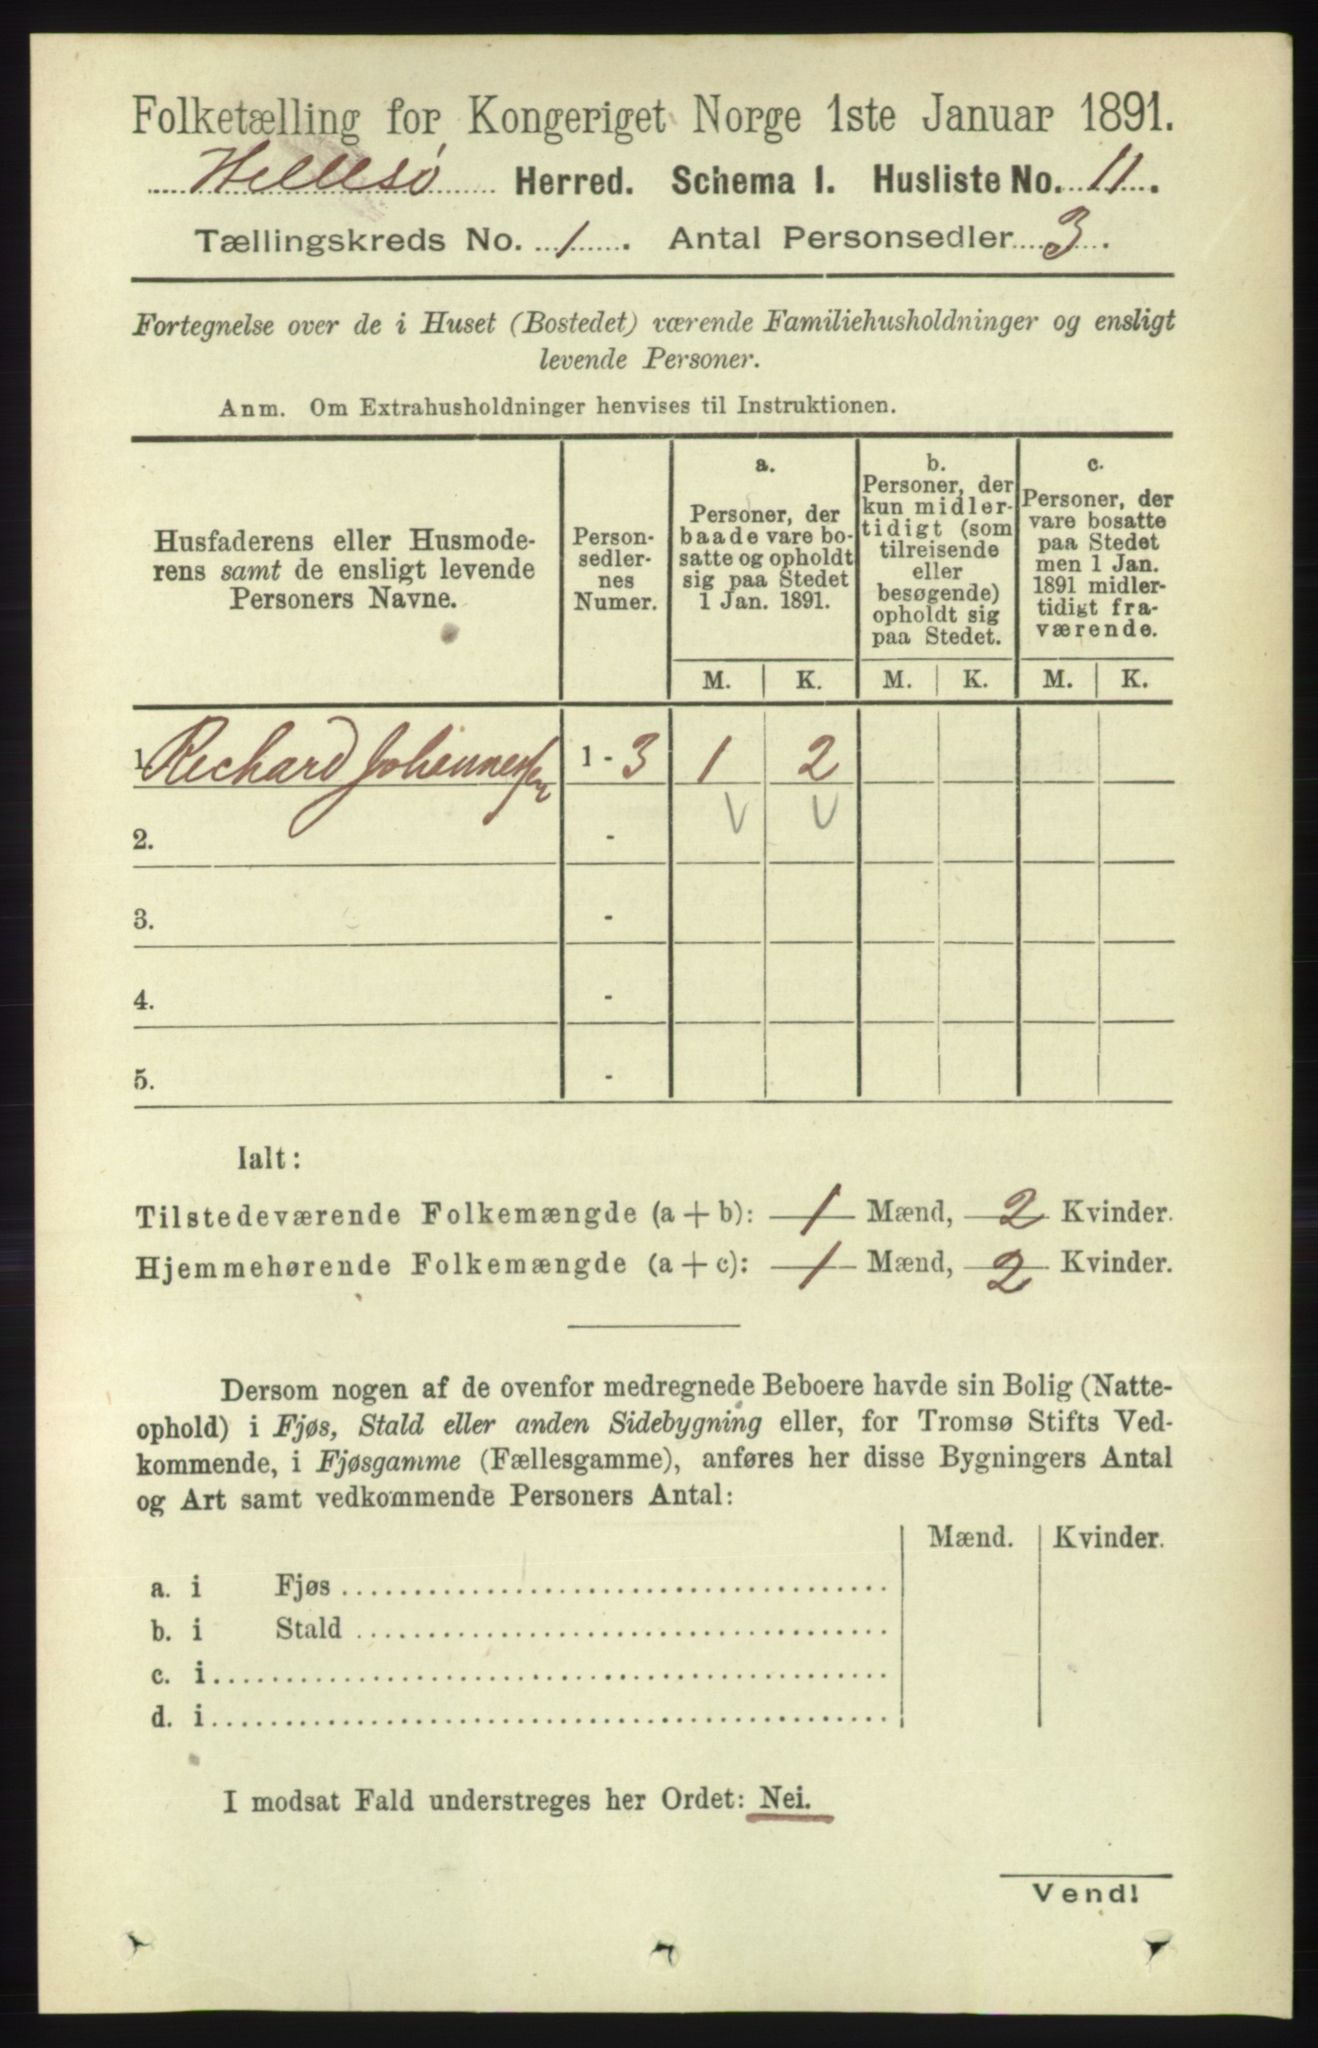 Folketælling for Kongeriget Norge 1ste Januar 1891.
Hellesø Herred. Schema I. Husliste No. 11.
Tællingskreds No. 1. Antal Personsedler 3.
Fortegnelse over de i Huset (Bostedet) værende Familiehusholdninger og ensligt
levende Personer.
Anm. Om Extrahusholdninger henvises til Instruktionen.
Husfaderens eller Husmode-
rens samt de ensligt levende
Personers Navne.
Person-
sedler-
nes
Numer.
a.
Personer, der
baade vare bo-
satte og opholdt
sig paa Stedet
1 Jan. 1891.
b.
Personer, der
kun midler-
tidigt (som
tilreisende
eller
besøgende)
opholdt sig
paa Stedet.
c.
Personer, der
vare bosatte
paa Stedet
men 1 Jan.
1891 midler-
tidigt fra-
værende.
M. K. M. K. M. K.
1. Richard Johannessen 1 - 3 1 2
2. -
3. -
4. -
5. -
Ialt:
Tilstedeværende Folkemængde (a + b): 1 Mænd, 2 Kvinder.
Hjemmehørende Folkemængde (a + c): 1 Mænd, 2 Kvinder.
Dersom nogen af de ovenfor medregnede Beboere havde sin Bolig (Natte-
ophold) i Fjøs, Stald eller anden Sidebygning eller, for Tromsø Stifts Ved-
kommende, i Fjøsgamme (Fællesgamme), anføres her disse Bygningers Antal
og Art samt vedkommende Personers Antal:
Mænd. Kvinder.
a. i Fjøs
b. i Stald
c. i
d. i
I modsat Fald understreges her Ordet: Nei.
Vend!